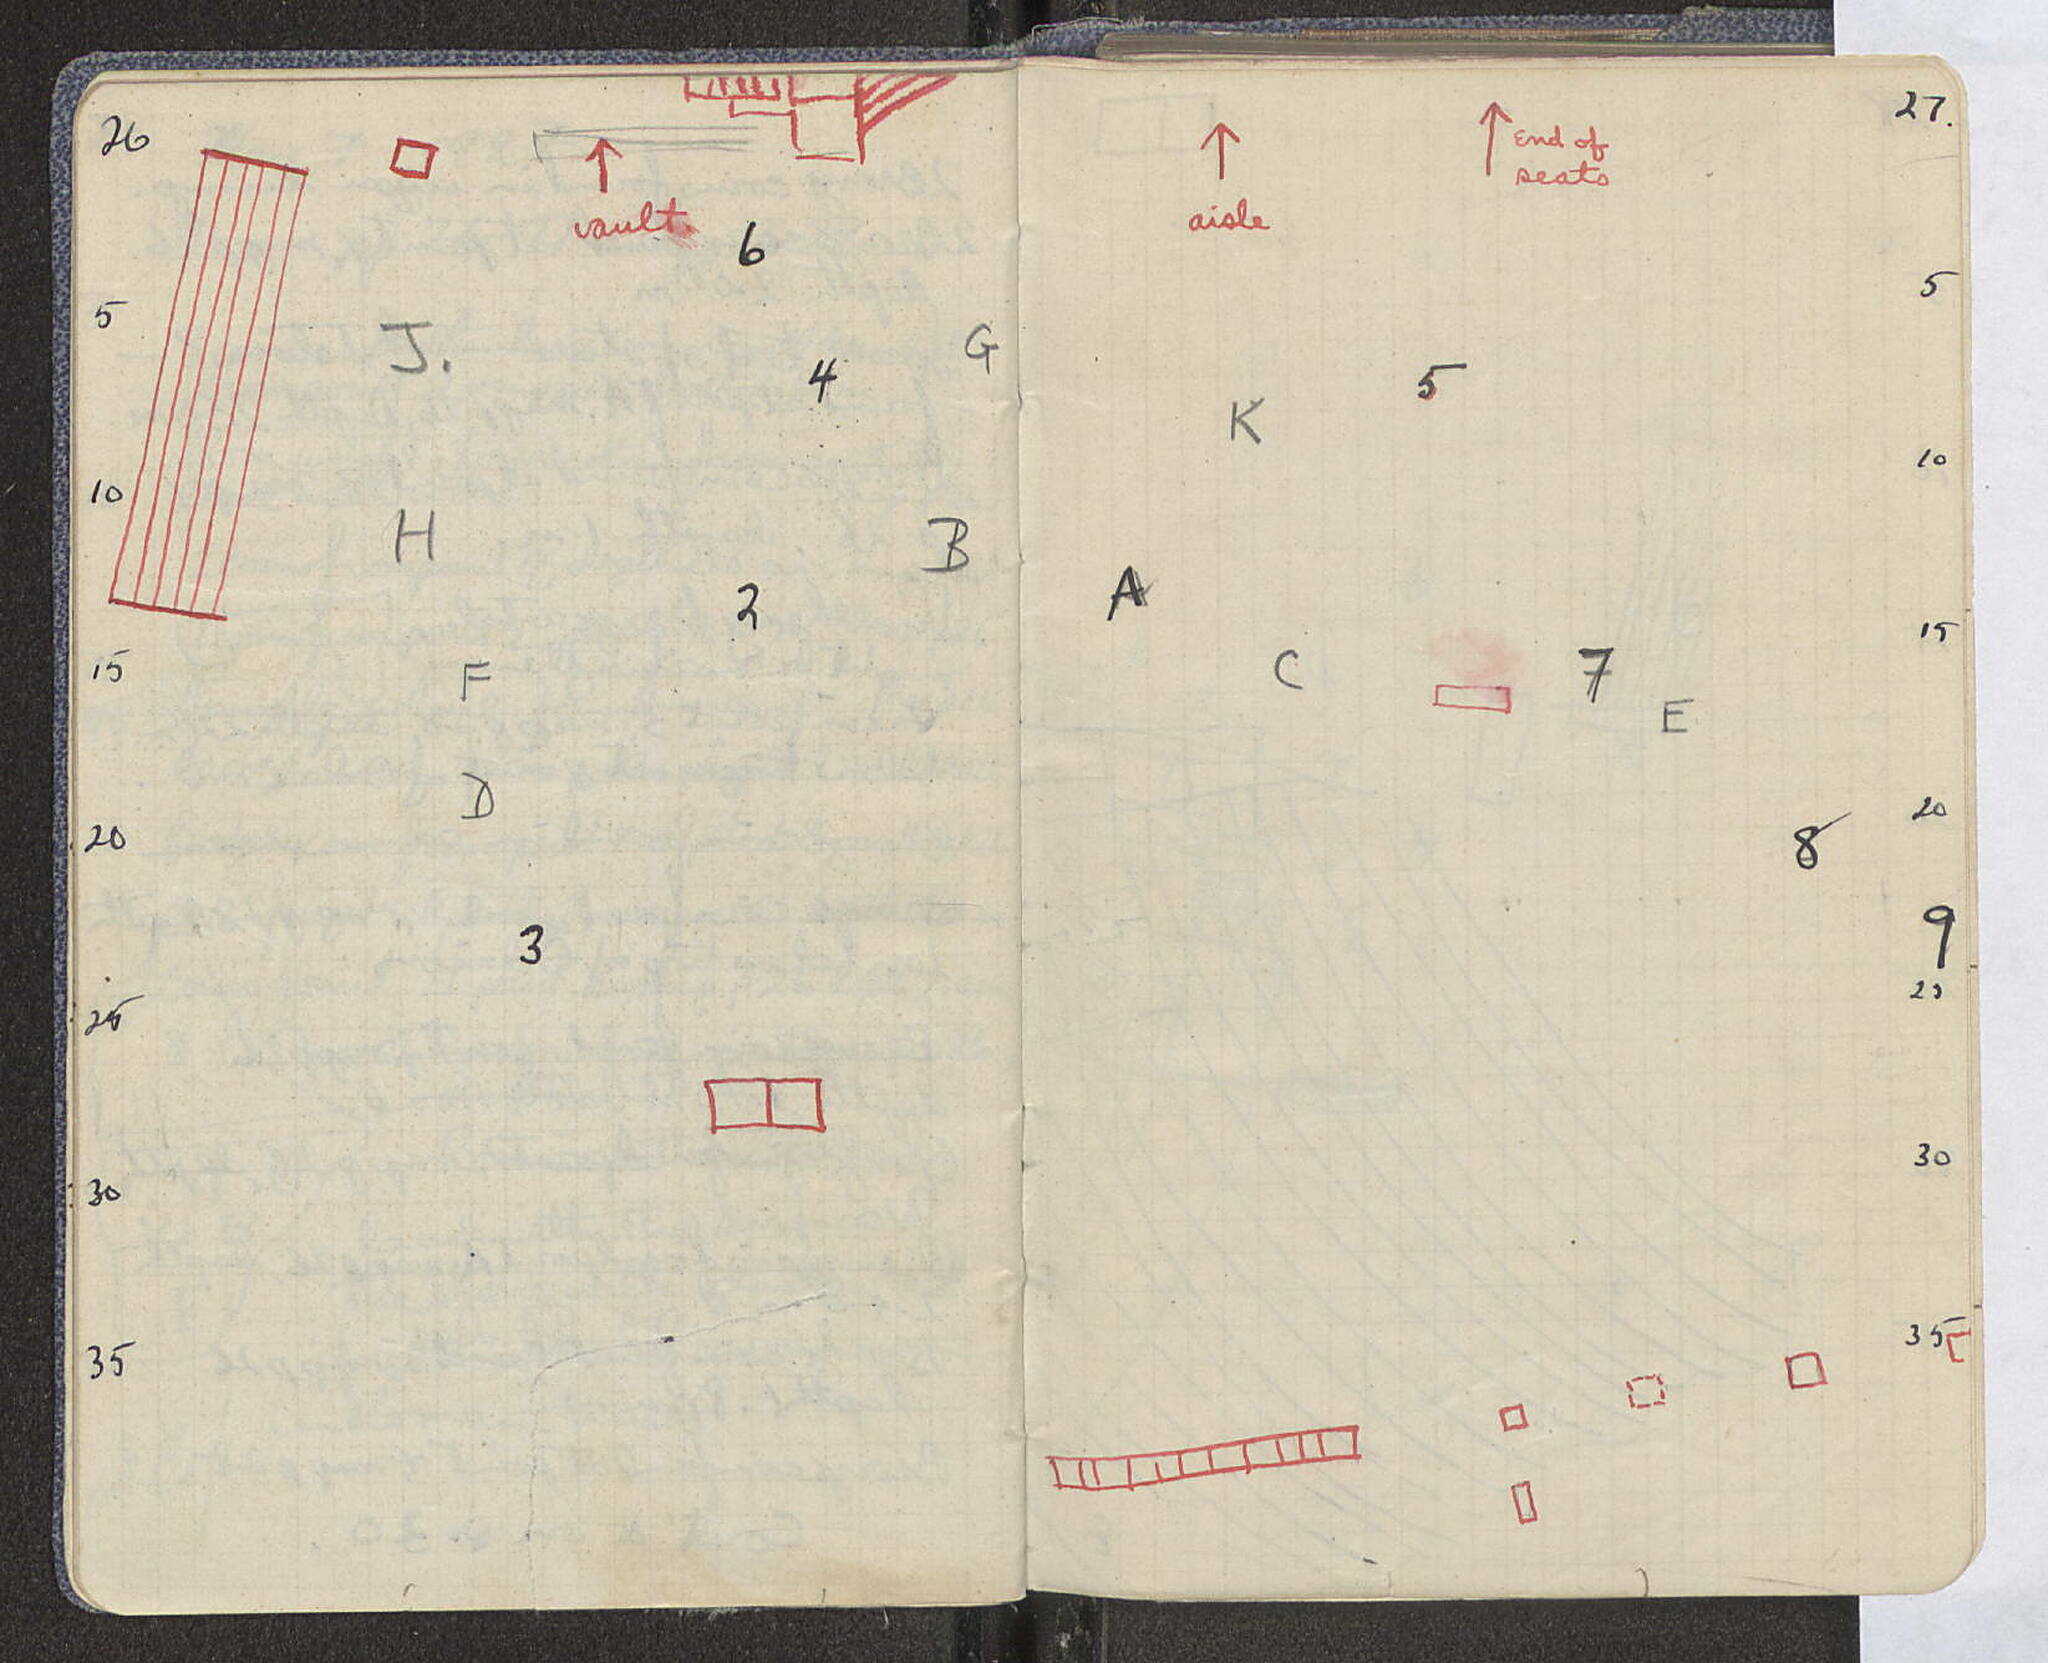 26
vault
6
5
J.
4
G
10
H
B
2
15
F
D
20
3
25
30
35
27.
End of
seats
aisle
5
5
K
10
A
15
C
7
E
20
8
9
25
30
35